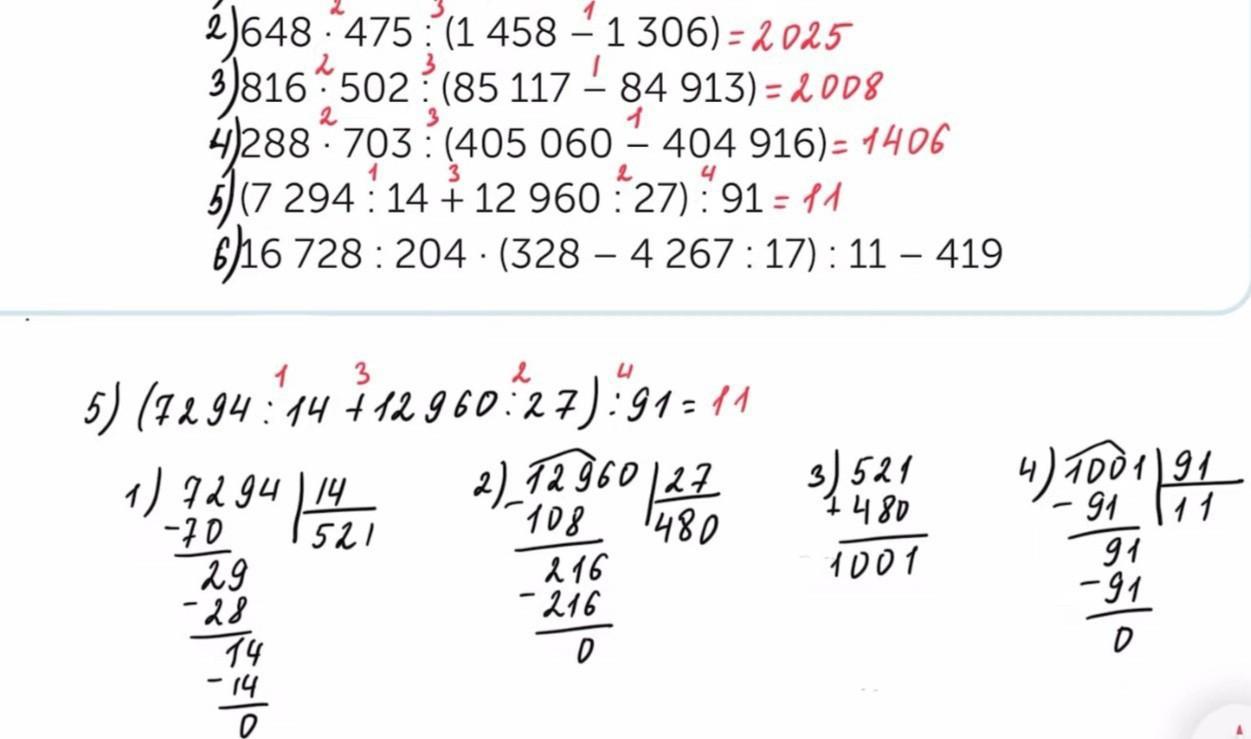 2) 648 · 475 : (1 458 – 1 306) = 2025
2 3 1
3) 816 · 502 : (85 117 – 84 913) = 2008
2 3 1
4) 288 · 703 : (405 060 – 404 916) = 1406
2 3 1
5) (7 294 : 14 + 12 960 : 27) : 91 = 11
1 3 2 4
6) 16 728 : 204 · (328 – 4 267 : 17) : 11 – 419
1 3 2 4
5) (7294 : 14 + 12960 : 27) : 91 = 11
1) 7294 | 14
-70 521
29
-28
14
-14
0
2) 12960 | 27
-108 480
216
-216
0
3) 521
+ 480
1001
4) 1001 | 91
-91 11
91
-91
0